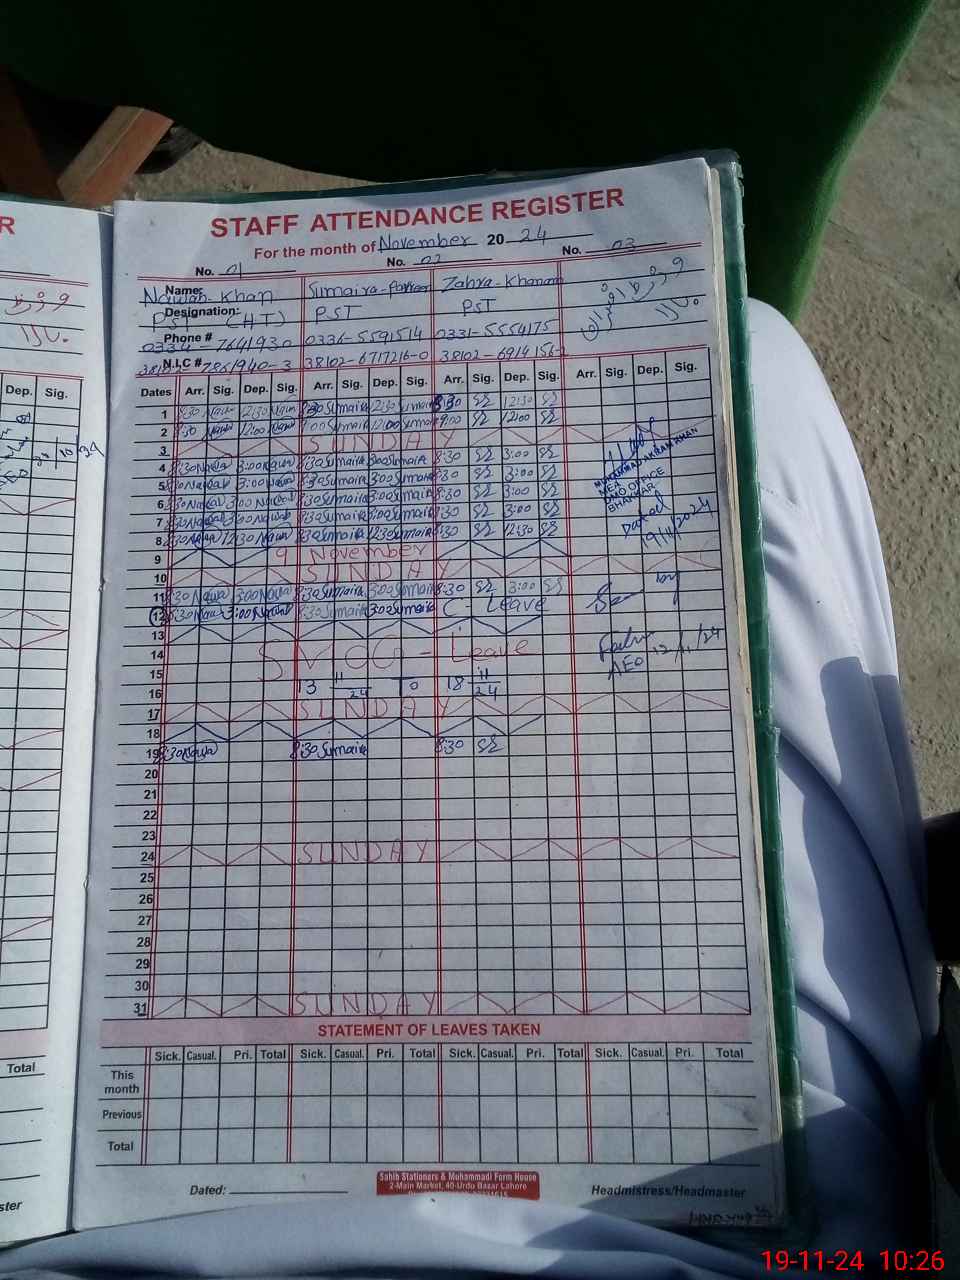 R
STAFF ATTENDANCE REGISTER
For the month of November 20 24
No. 01 No. 02 No. 03
Name: Nawab Khan Sumaira Parveen Zahra-Khanam
Designation: PST (HT) PST PST
Phone # 0334-7641930 0336-5591514 0331-5554175
N.I.C # 38102-6717216-0
Dep. Sig.
Dates Arr. Sig. Dep. Sig. Arr. Sig. Dep. Sig. Arr. Sig. Dep. Sig. Arr. Sig. Dep. Sig.
1 8:30 12:30 8:30 Sumaira 12:30 Sumaira 8:30 12:30
2 12:00 9:00 Sumaira 12:00 Sumaira 9:00 12:00
3 SUNDAY
4 8:30 Nawab 3:00 Nawab 8:30 Sumaira 3:00 Sumaira 8:30 3:00
5 8:30 Nawab 3:00 Nawab 8:30 Sumaira 3:00 Sumaira 8:30 3:00
6 8:30 Nawab 3:00 Nawab 8:30 Sumaira 3:00 Sumaira 8:30 3:00
7 8:30 Nawab 3:00 Nawab 8:30 Sumaira 3:00 Sumaira 8:30 3:00
8 8:30 Nawab 12:30 Nawab 8:30 Sumaira 12:30 Sumaira 8:30 12:30
MUHAMMAD AKRAM KHAN
MEA
DMO OFFICE
BHAKKAR
Dated
19/11/2024
9 9 November
10 SUNDAY
11 8:30 Nawab 3:00 Nawab 8:30 Sumaira 3:00 Sumaira 8:30 3:00
12 8:30 Nawab 3:00 Nawab 8:30 Sumaira 3:00 Sumaira C-Leave
by
13
14 Leave
AEO 12/11/24
15 13 11/24 To 18 11/24
16
17 SUNDAY
18
19 8:30 Nawab 8:30 Sumaira 8:30
20
21
22
23
24 SUNDAY
25
26
27
28
29
30
31 SUNDAY
STATEMENT OF LEAVES TAKEN
Sick. Casual. Pri. Total Sick. Casual. Pri. Total Sick. Casual. Pri. Total Sick. Casual. Pri. Total
Total
This month
Previous
Total
Dated:
Sahib Stationers & Muhammadi Form House
2-Main Market, 40-Urdu Bazar Lahore
Headmistress/Headmaster
ster
19-11-24 10:26